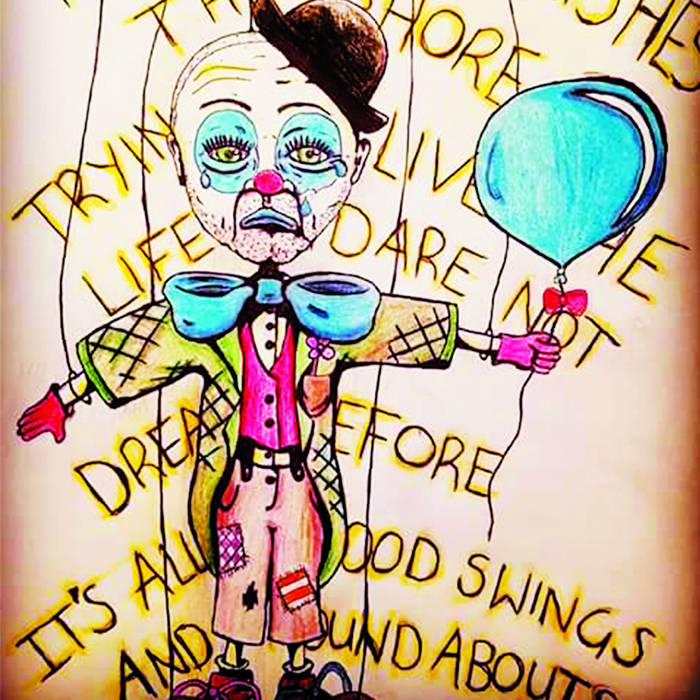 SHORE
TRYIN LIVE HE
LIFE DARE NOT
DREA EFORE
IT'S ALL OOD SWINGS
AND OUNDABOUTS